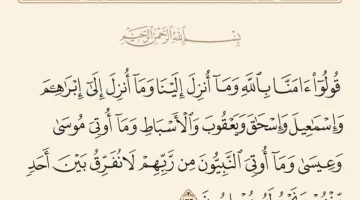 بِسْمِ اللَّهِ الرَّحْمَٰنِ الرَّحِيمِ
قُولُوٓا۟ ءَامَنَّا بِٱللَّهِ وَمَآ أُنزِلَ إِلَيْنَا وَمَآ أُنزِلَ إِلَىٰٓ إِبْرَٰهِـۧمَ
وَإِسْمَٰعِيلَ وَإِسْحَٰقَ وَيَعْقُوبَ وَٱلْأَسْبَاطِ وَمَآ أُوتِىَ مُوسَىٰ
وَعِيسَىٰ وَمَآ أُوتِىَ ٱلنَّبِيُّونَ مِن رَّبِّهِمْ لَا نُفَرِّقُ بَيْنَ أَحَدٍ